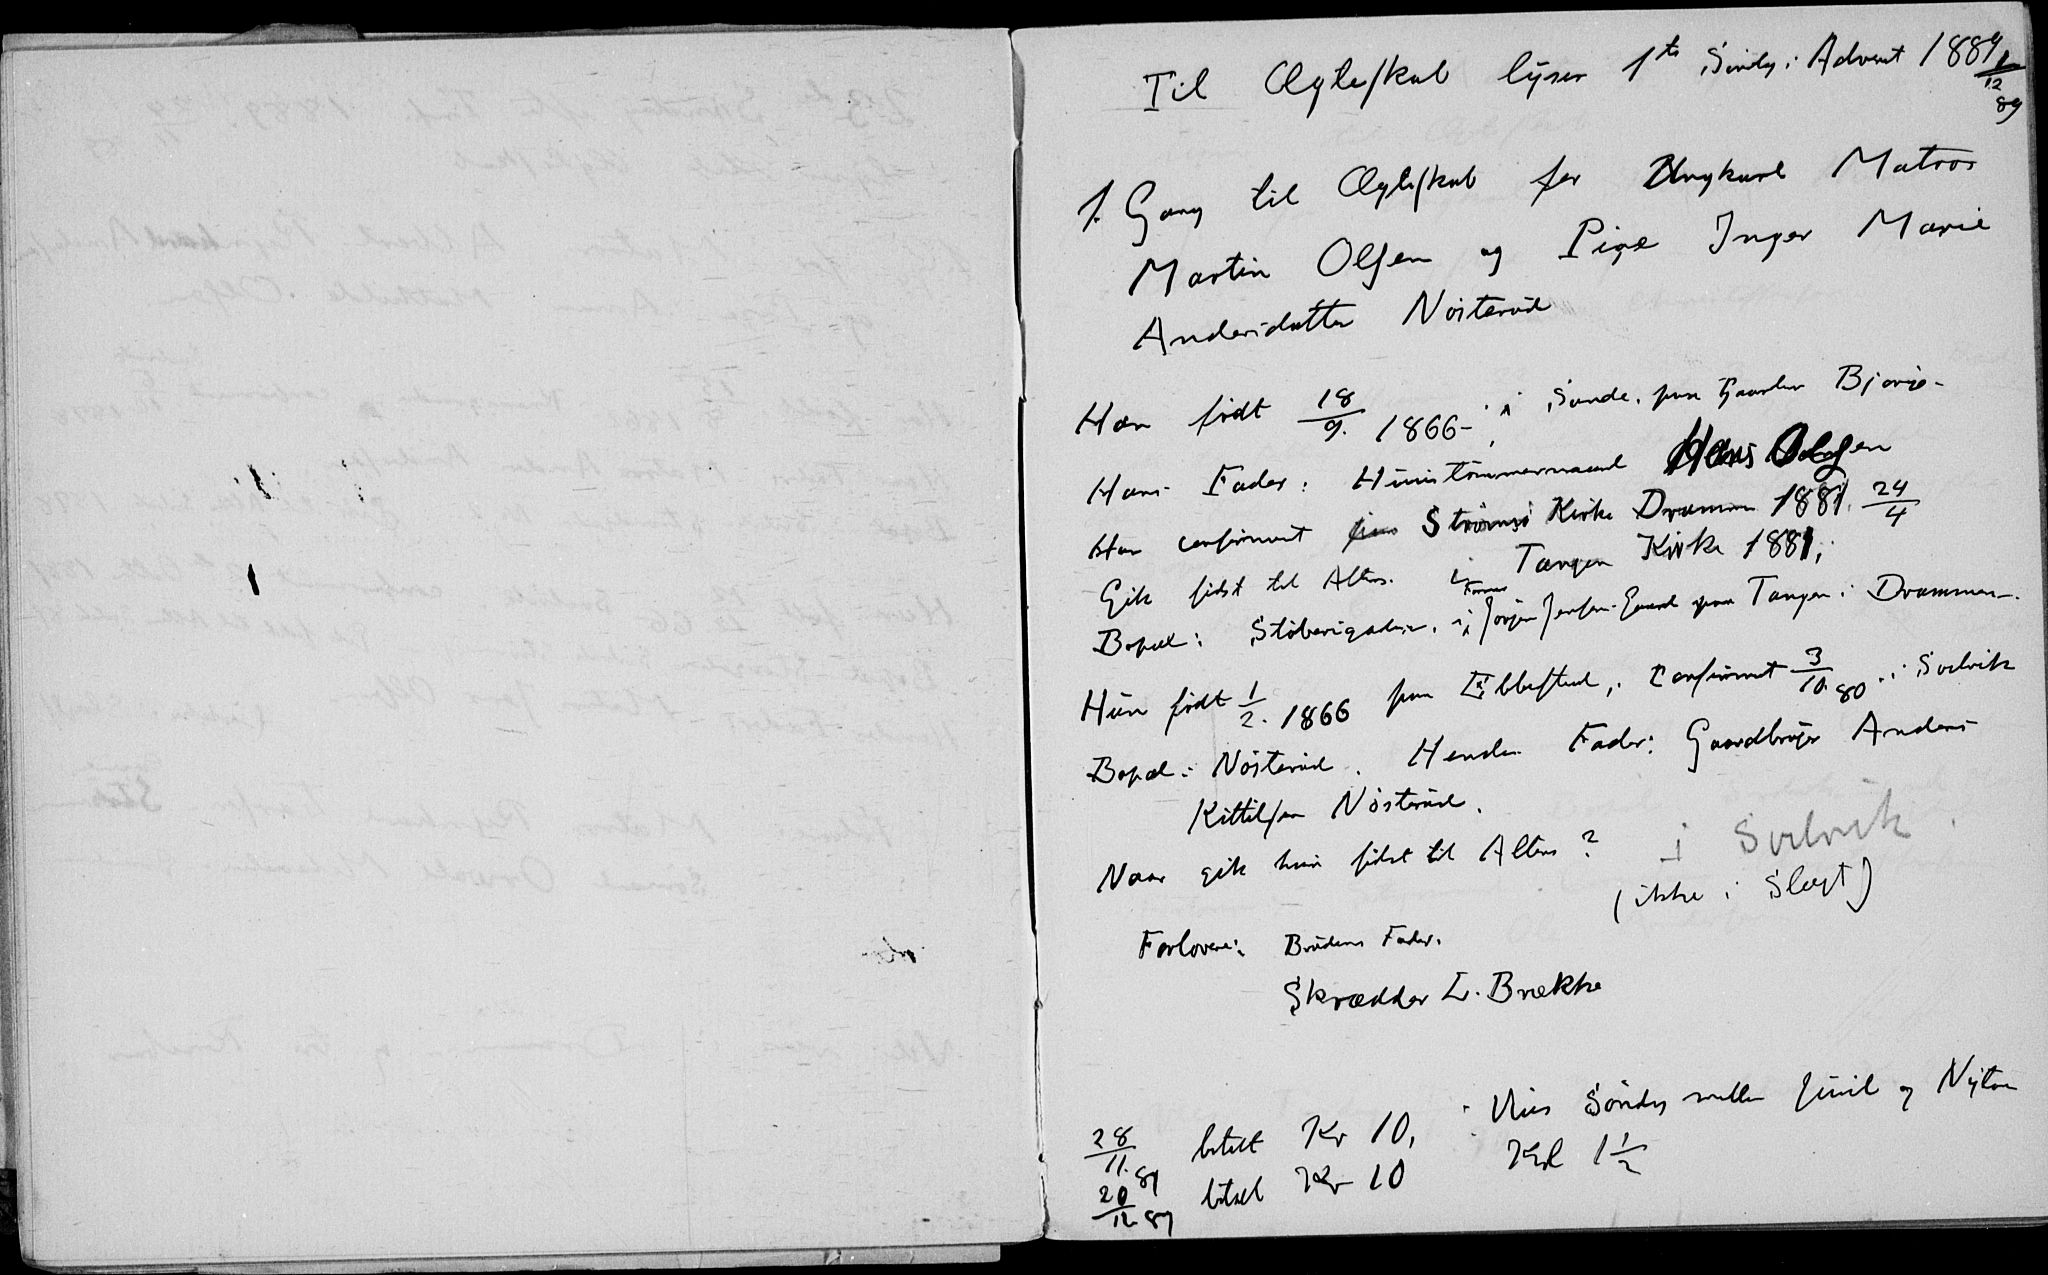 Til Ægteskab lyser 1ste Søndg i Advent 1889 1/12 89
1. Gang til Ægteskab for Ungkarl Matros
Martin Olsen og Pige Inger Marie
Andersdatter Nösteröd
Han födt 18/9. 1866 - i Sande, paa Gaarden
Hans Fader: Huustömmermand Hans Olsen
Han confirmeret Strömsö Kirke Drammen 1881. 24/4
Gik sidst til Alters. i Tangen Kirke 1881,
Bopæl: Stöberigaden, i Jörgen Jensens Gaard paa Tangen i Drammen.
Hun födt 1/2. 1866 paa Ebbestad, confirmeret 3/10. 80. i Svelvik
Bopæl: Nösteröd. Hendes Fader: Gaardbruger Anders
Kittilsen Nösteröd.
Naar gik hun sidst til Alters? i Svelvik.
(ikke i Slægt)
Forlovere: Brudens Fader.
Skrædder L. Brække
28/11. 89 betalt Kr 10, Vies Söndag mellem Juul og Nytaar
20/12 89 betalt Kr 10 Kl 1 1/2